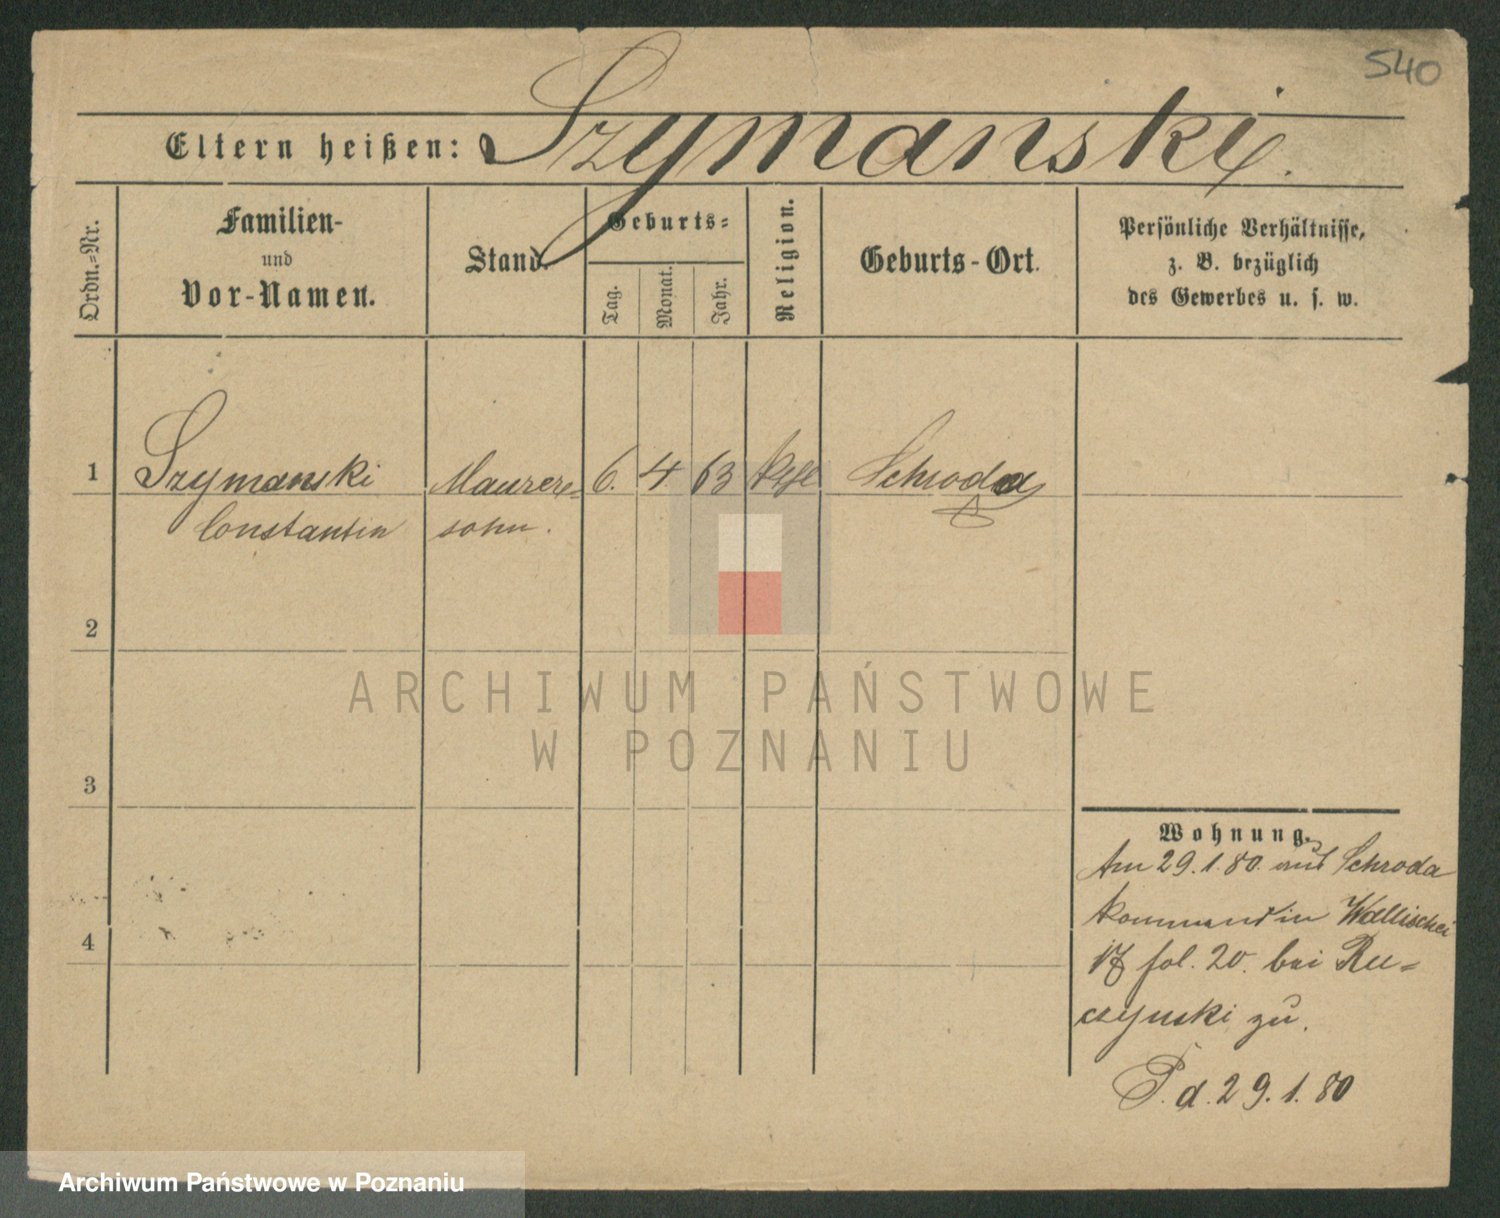 540
Eltern heißen: Szymanski.
Ordn.-Nr.
Familien-
und
Vor-Namen.
Stand.
Geburts-
Tag.
Monat.
Jahr.
Religion.
Geburts-Ort.
Persönliche Verhältnisse,
z. B. bezüglich
des Gewerbes u. s. w.
1 Szymanski Maurer- 6. 4 63 Schroda
Constantin sohn.
2
3
4
Wohnung.
Am 29.1.80. aus Schroda
kommend in Wallischei
17 fol. 20. bei Ru-
czynski zu.
P. d. 29.1.80
ARCHIWUM PAŃSTWOWE
W POZNANIU
Archiwum Państwowe w Poznaniu